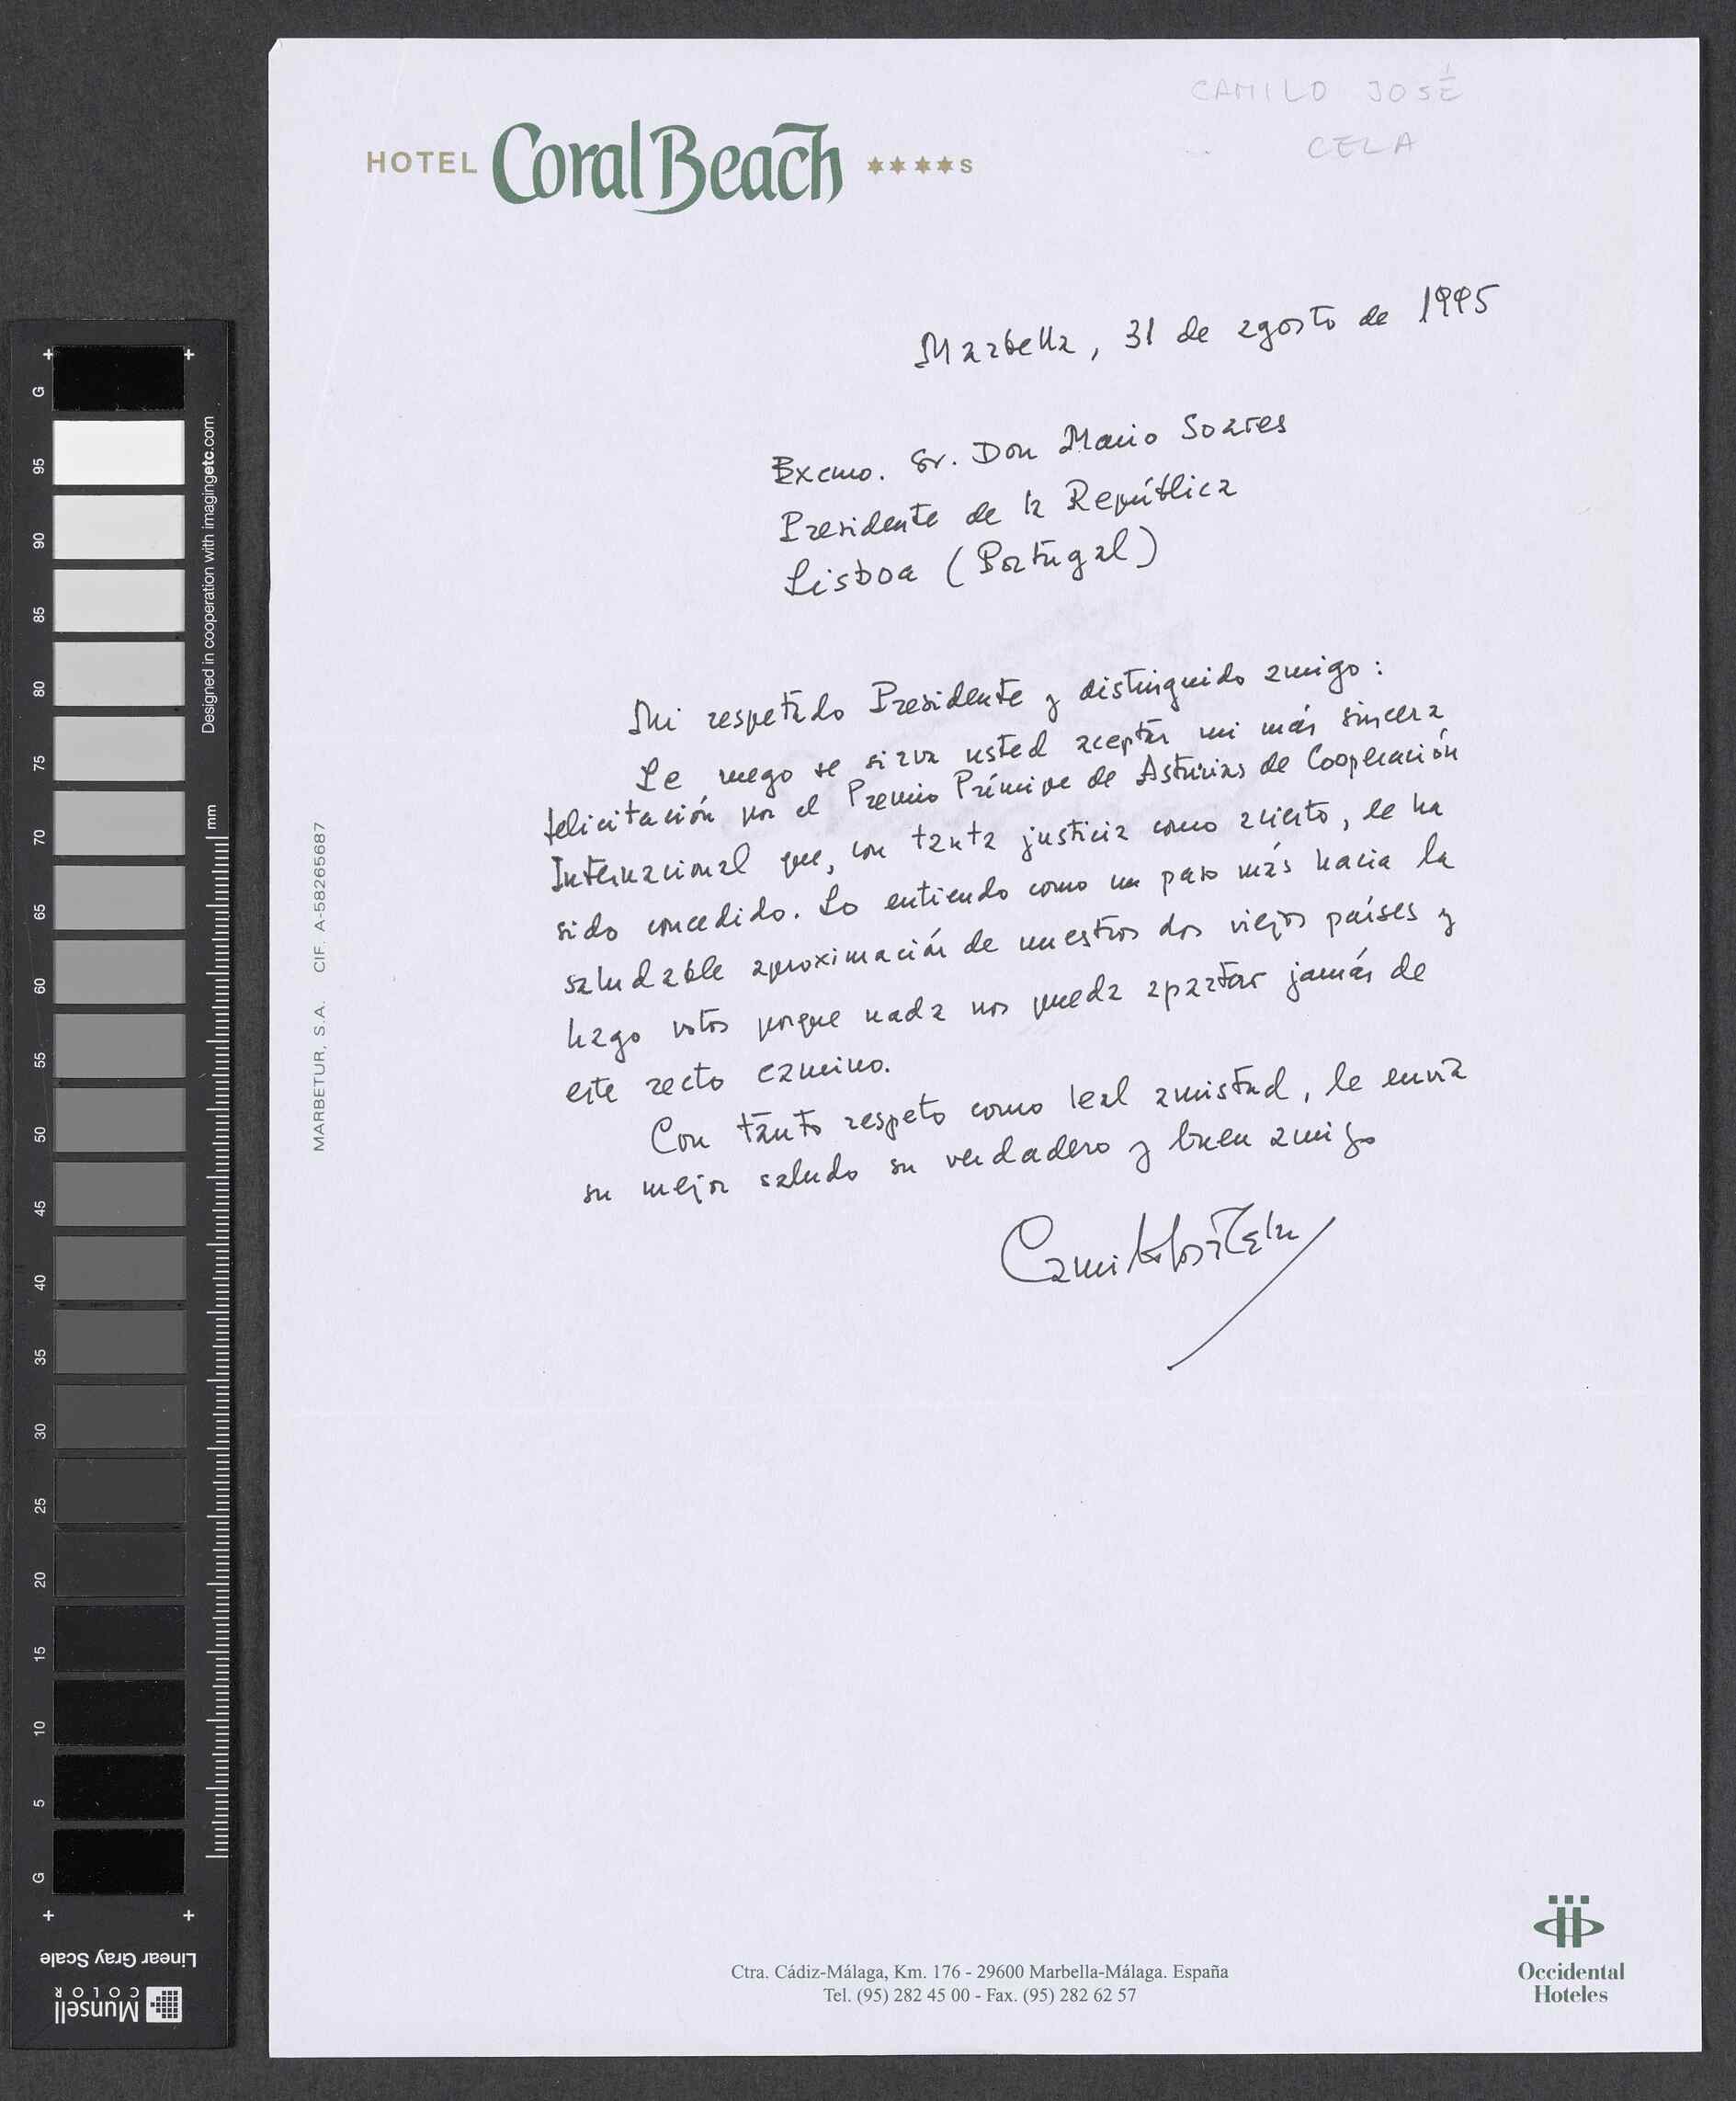 CAMILO JOSÉ
CELA
HOTEL Coral Beach ****S
Marbella, 31 de agosto de 1995
Excmo. Sr. Don Mario Soares
Presidente de la República
Lisboa (Portugal)
Mi respetado Presidente y distinguido amigo:
Le ruego se sirva usted aceptar mi más sincera
felicitación por el Premio Príncipe de Asturias de Cooperación
Internacional que, con tanta justicia como acierto, le ha
sido concedido. Lo entiendo como un paso más hacia la
saludable aproximación de nuestros dos viejos países y
hago votos porque nada nos pueda apartar jamás de
este recto camino.
Con tanto respeto como leal amistad, le envía
su mejor saludo su verdadero y buen amigo
Camilo José Cela
MARBETUR, S.A. CIF. A-58265687
Ctra. Cádiz-Málaga, Km. 176 - 29600 Marbella-Málaga. España
Tel. (95) 282 45 00 - Fax. (95) 282 62 57
Occidental
Hoteles
Designed in cooperation with imagingetc.com
mm
G
95
90
85
80
75
70
65
60
55
50
45
40
35
30
25
20
15
10
5
G
Linear Gray Scale
Munsell
COLOR